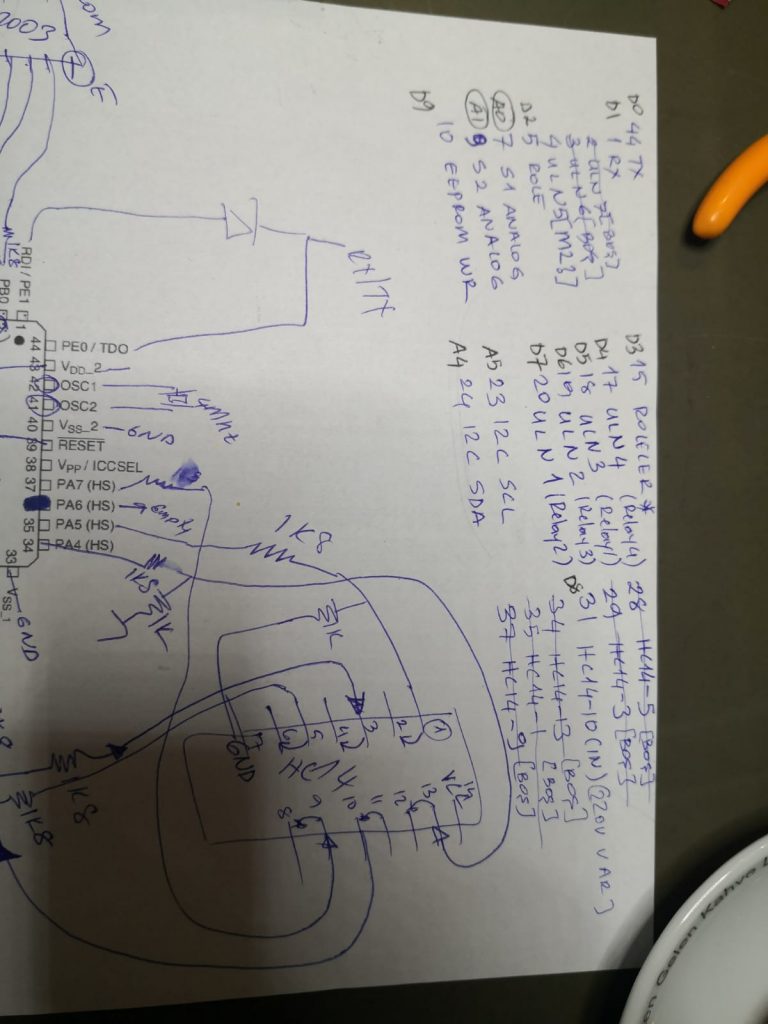 D0 44 TX
D1 1 RX
2 ULN7 [BOŞ]
3 ULN6 [BOŞ]
4 ULN5 [M23]
D2 5 ROLE
A0 7 S1 ANALOG
A1 9 S2 ANALOG
D9 10 EEPROM WR
D3 15 ROLELER*
D4 17 ULN4 (Relay4)
D5 18 ULN3 (Relay1)
D6 19 ULN2 (Relay3)
D7 20 ULN1 (Relay2)
A5 23 I2C SCL
A4 24 I2C SDA
28 HC14-5 [BOŞ]
29 HC14-3 [BOŞ]
D8 31 HC14-10 (IN) [220V VAR]
34 HC14-13 [BOŞ]
35 HC14-1 [BOŞ]
37 HC14-9 [BOŞ]
com
2003
E
RX/TX
1K8
RDI / PE1
1
44 PE0 / TDO
43 VDD_2
42 OSC1
41 OSC2
4MHz
40 VSS_2 GND
39 RESET
38 VPP / ICCSEL
37 PA7 (HS)
PA6 (HS) empty
35 PA5 (HS)
34 PA4 (HS)
33 VSS_1 GND
1K8
1K8
1K
1K
1
2
3
4
5
6
7
GND
HC14
14
VCC
13
12
11
10
9
8
1K8
1K8
en Gelen Kahve